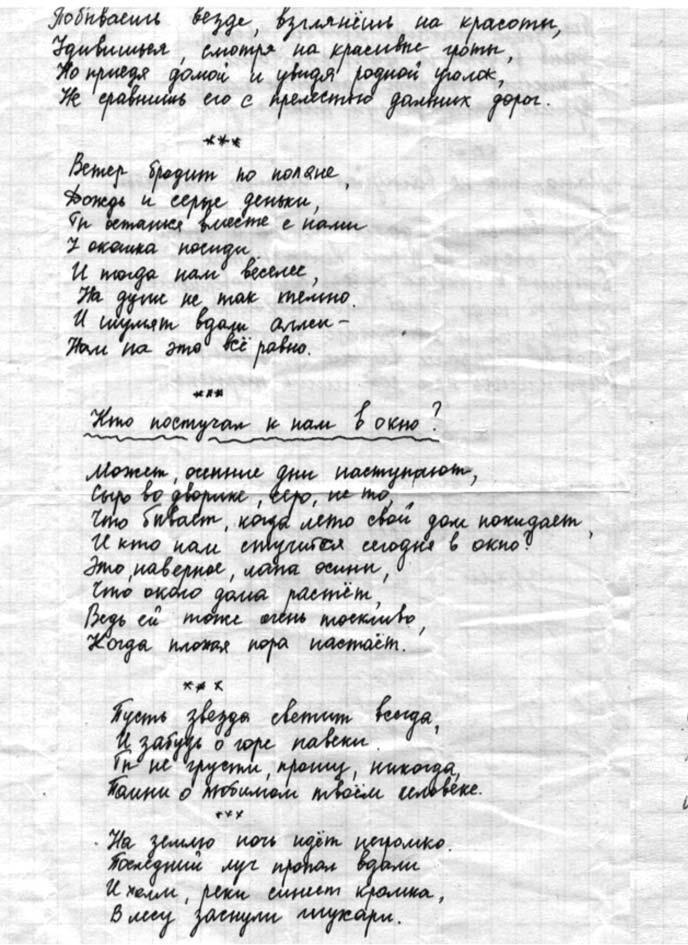 Побываешь везде, взглянёшь на красоты,
Удивишься, смотря на красивые гроты,
Но приедя домой и увидя родной уголок,
Не сравнишь его с прелестью дальних дорог.
***
Ветер бродит по поляне,
Дождь и серые деньки,
Ты останься вместе с нами
У окошка посиди.
И тогда нам веселее,
На душе не так темно.
И шумят вдали аллеи –
Нам на это всё равно.
***
Кто постучал к нам в окно?
Может, осенние дни наступают,
Сыро во дворике, серо, не то,
Что бывает, когда лето свой дом покидает,
И кто нам стучится сегодня в окно?
Это, наверное, лапа осины,
Что около дома растёт,
Ведь ей тоже очень тоскливо,
Когда плохая пора настаёт.
***
Пусть звезда светит всегда,
И забудь о горе навеки.
Ты не грусти, прошу, никогда,
Помни о любимом твоём человеке.
***
На землю ночь идёт негромко.
Последний луч пропал вдали
И холм, реки синеет кромка,
В лесу заснули глухари.